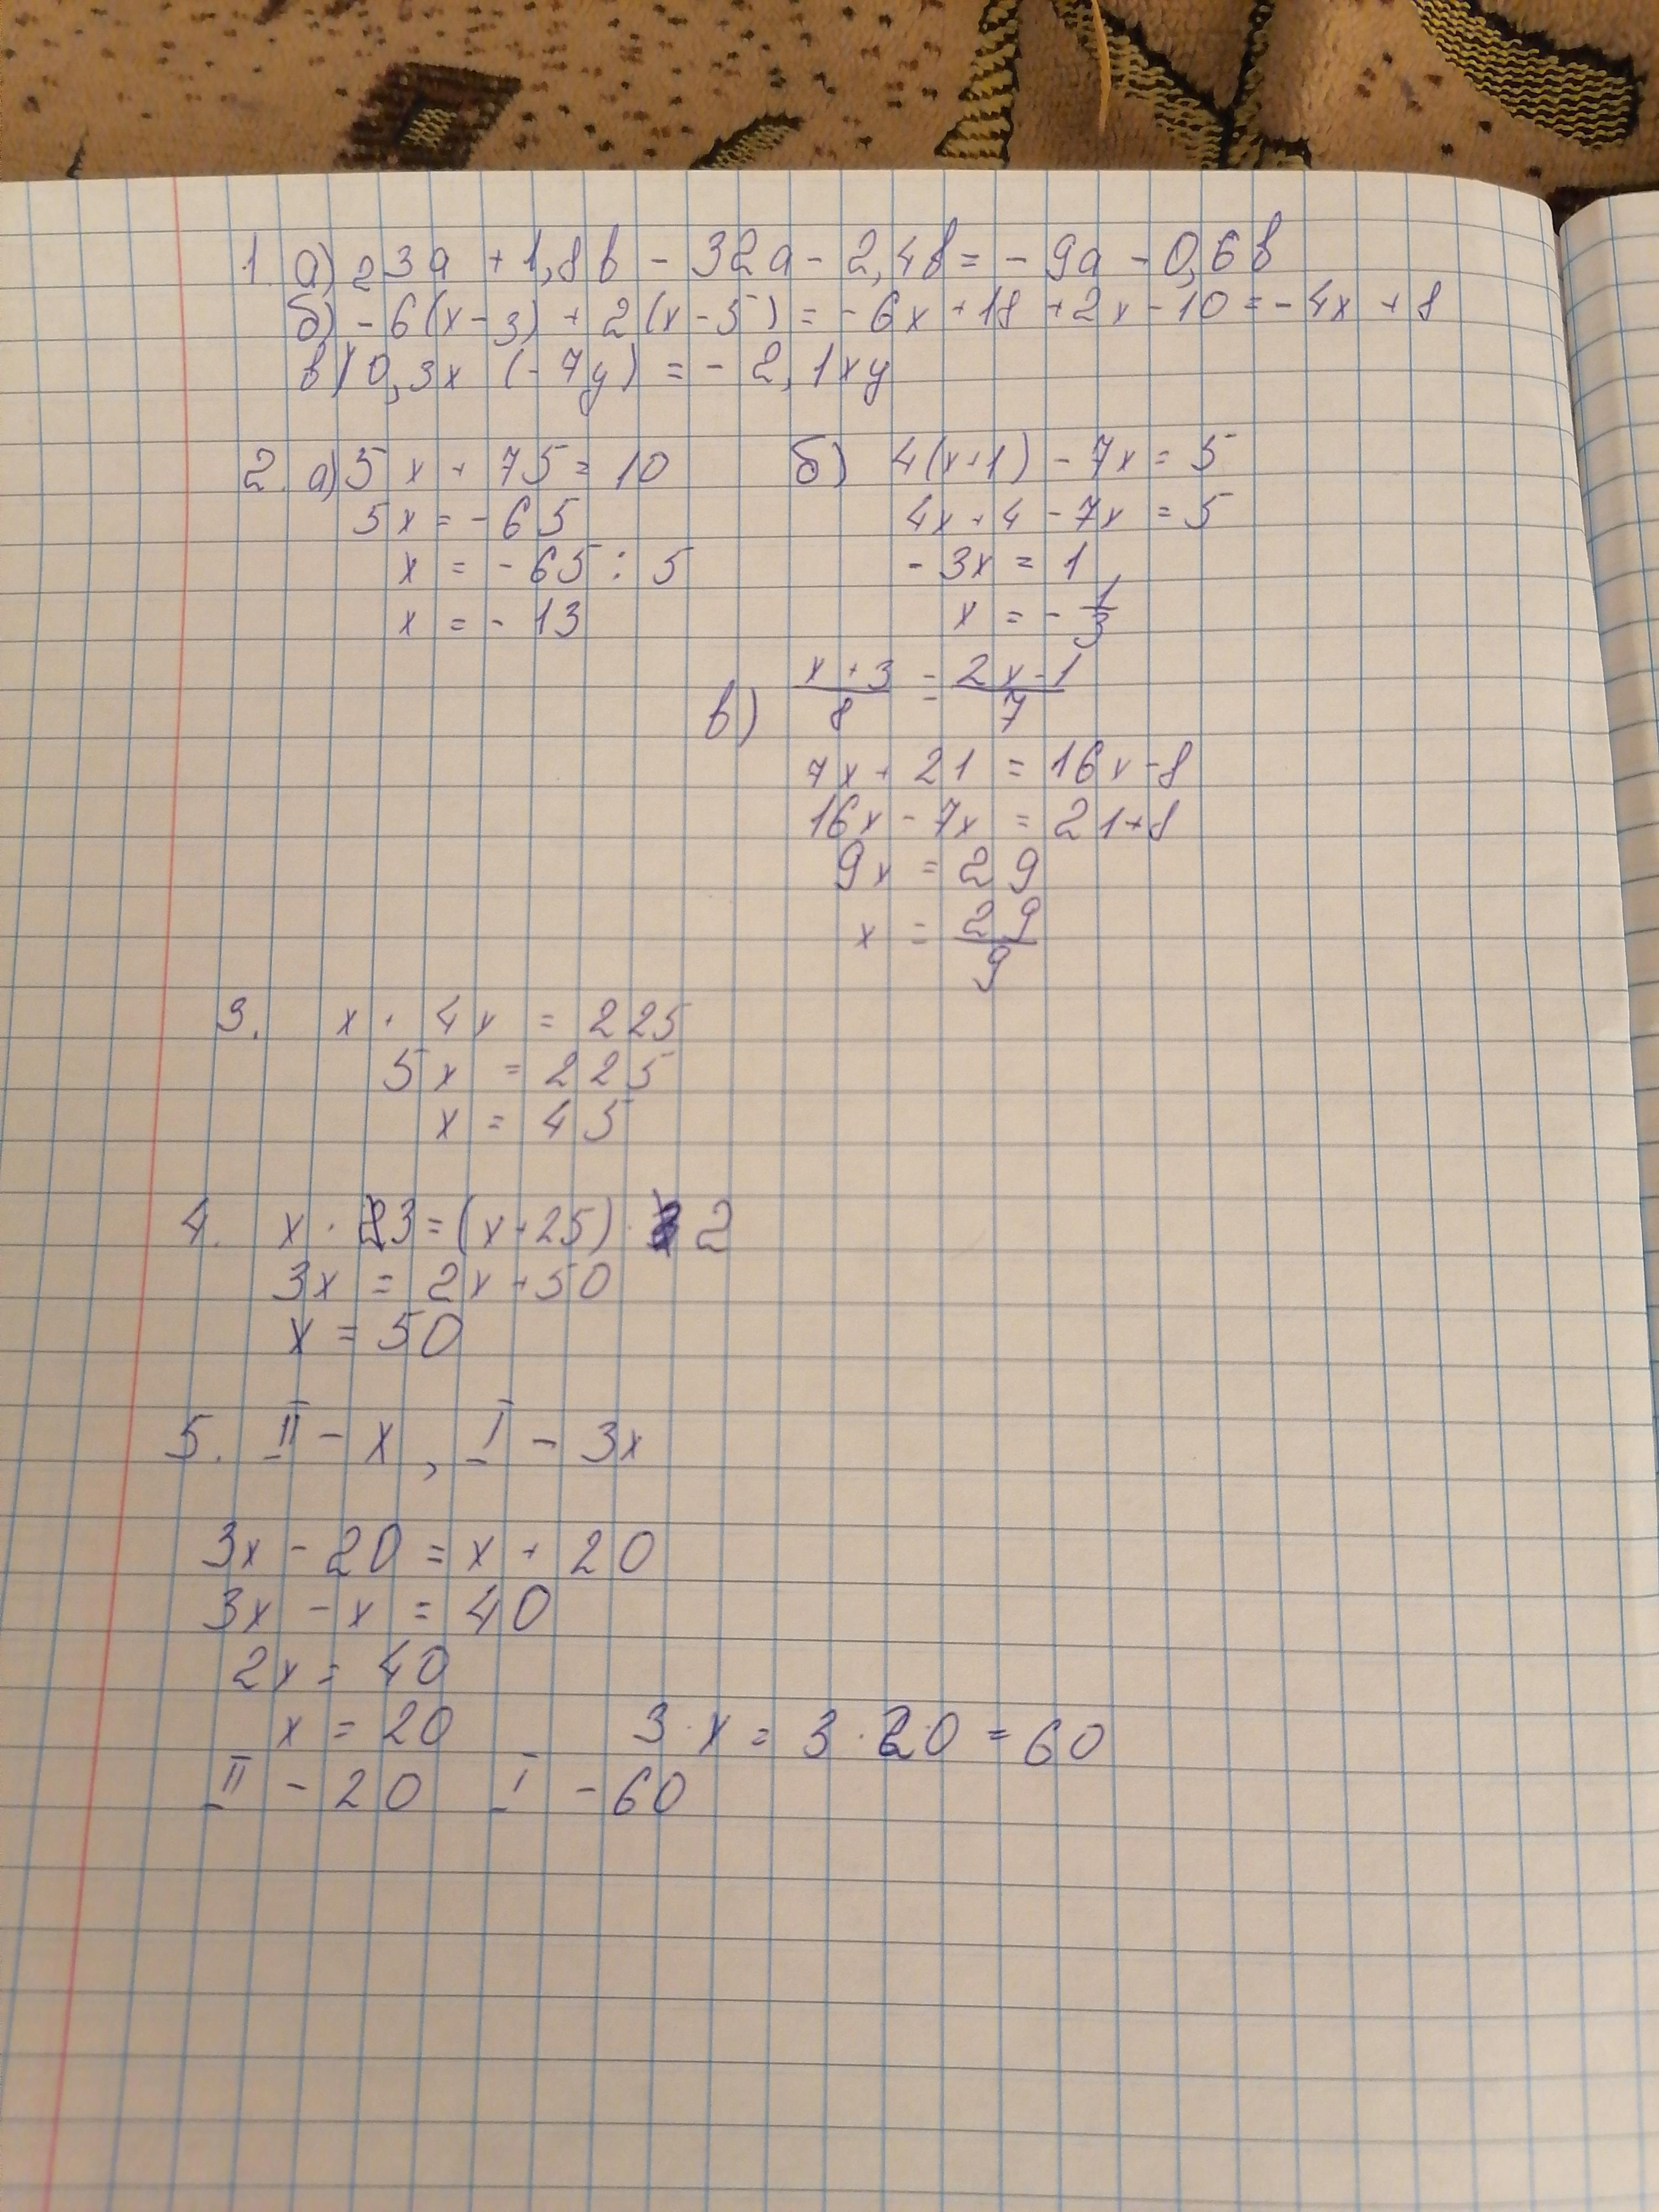 1. а) 23a + 1,8b - 32a - 2,4b = - 9a - 0,6b
б) - 6(x - 3) + 2(x - 5) = - 6x + 18 + 2x - 10 = - 4x + 8
в) 0,3x (- 7y) = - 2,1xy
2. а) 5x + 75 = 10
5x = - 65
x = - 65 : 5
x = - 13
б) 4(x+1) - 7x = 5
4x + 4 - 7x = 5
- 3x = 1
x = - 1/3
в) x + 3 / 8 = 2x - 1 / 7
7x + 21 = 16x - 8
16x - 7x = 21 + 8
9x = 29
x = 29/9
3. x + 4x = 225
5x = 225
x = 45
4. x · 3 = (x + 25) · 2
3x = 2x + 50
x = 50
5. II - x, I - 3x
3x - 20 = x + 20
3x - x = 40
2x = 40
x = 20 3 · x = 3 · 20 = 60
II - 20 I - 60